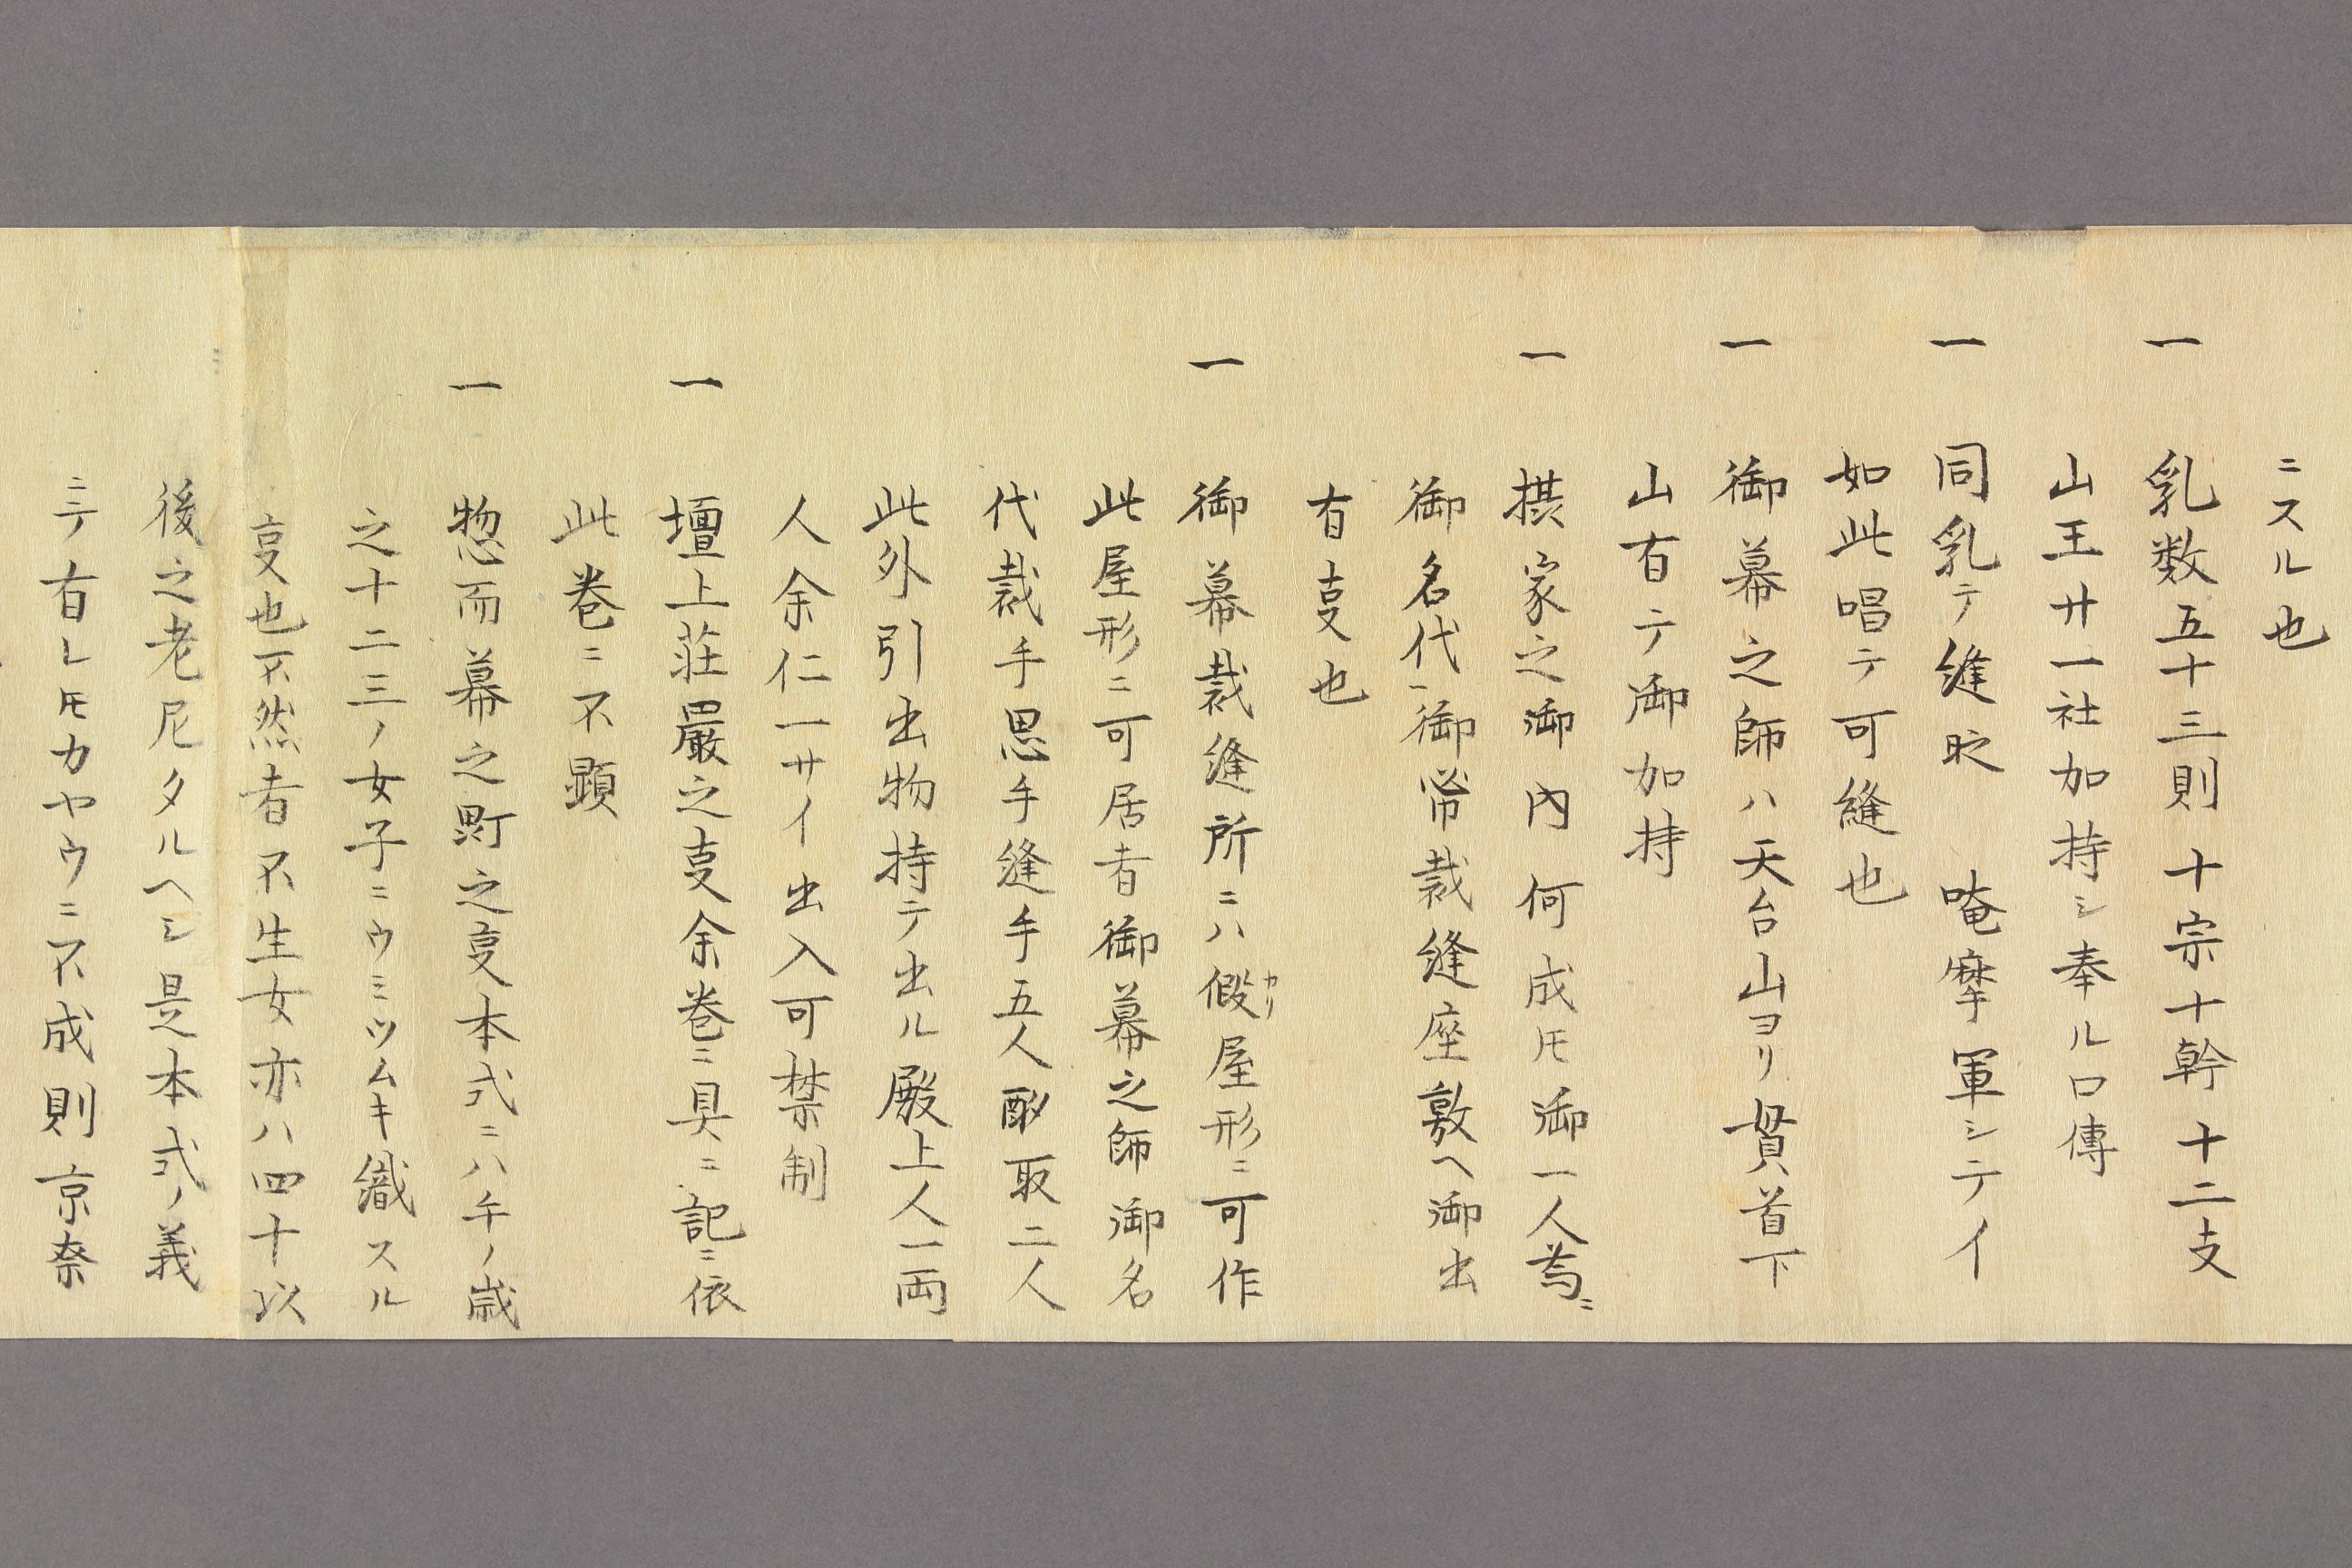 ニスル也
一 乳数五十三則十宗十幹十二支
山王廿一社加持シ奉ル口傳
一 同乳テ縫時 唵摩軍シテイ
如此唱テ可縫也
一 御幕之師ハ天台山ヨリ貫首下
山有テ御加持
一 摂家之御内何成𪜈御一人為ニ
御名代御帯裁縫座敷ヘ御出
有叓也
一 御幕裁縫所ニハ假カリ屋形ニ可作
此屋形ニ可居者御幕之師御名
代裁手思手縫手五人酌取二人
此外引出物持テ出ル殿上人一両
人余仁一サイ出入可禁制
一 壇上荘嚴之叓余巻ニ具ニ記ニ依
此巻ニ不顕
一 惣而幕之町之叓本式ニハ午ノ歳
之十二三ノ女子ニウミツムキ織スル
叓也不然者不生女亦ハ四十以
後之老尼タルヘシ是本式ノ義
ニテ有レ𪜈カヤウニ不成則京奈